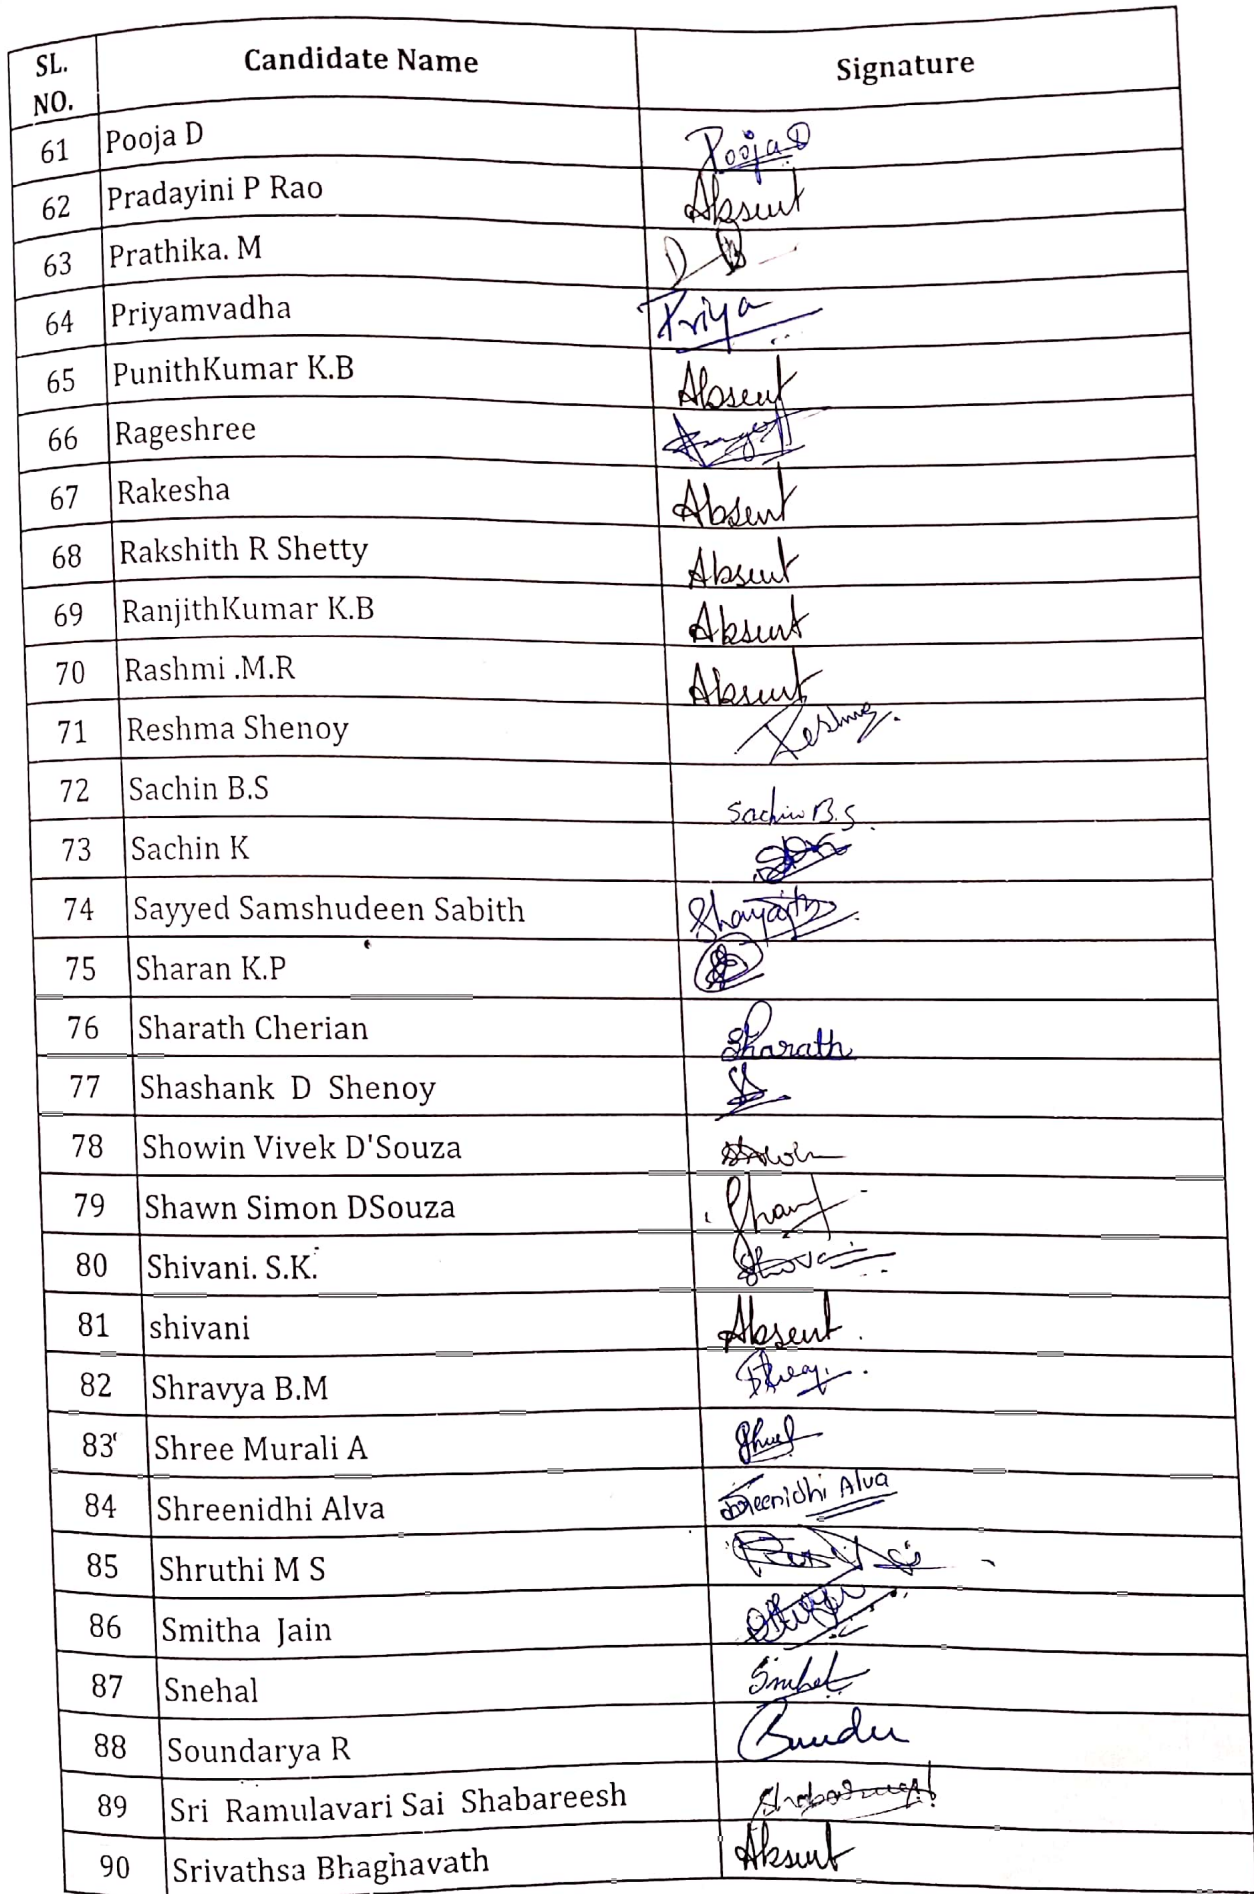 SL. NO. Candidate Name Signature
61 Pooja D Pooja D
62 Pradayini P Rao Absent
63 Prathika. M
64 Priyamvadha Priya
65 PunithKumar K.B Absent
66 Rageshree
67 Rakesha Absent
68 Rakshith R Shetty Absent
69 RanjithKumar K.B Absent
70 Rashmi .M.R Absent
71 Reshma Shenoy Reshma
72 Sachin B.S Sachin B.S.
73 Sachin K
74 Sayyed Samshudeen Sabith
75 Sharan K.P
76 Sharath Cherian Sharath
77 Shashank D Shenoy
78 Showin Vivek D'Souza Showin
79 Shawn Simon DSouza
80 Shivani. S.K.
81 shivani Absent.
82 Shravya B.M
83 Shree Murali A
84 Shreenidhi Alva Shreenidhi Alva
85 Shruthi M S
86 Smitha Jain
87 Snehal Snehal
88 Soundarya R
89 Sri Ramulavari Sai Shabareesh
90 Srivathsa Bhaghavath Absent